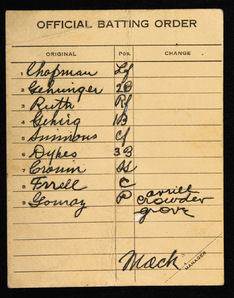 OFFICIAL BATTING ORDER
ORIGINAL POS. CHANGE
1 Chapman Lf
2 Gehringer 2B
3 Ruth Rf
4 Gehrig 1B
5 Simmons Cf
6 Dykes 3B
7 Cronin SS
8 Ferrell C Averill
9 Gomez P Crowder
Grove
Mack
MANAGER